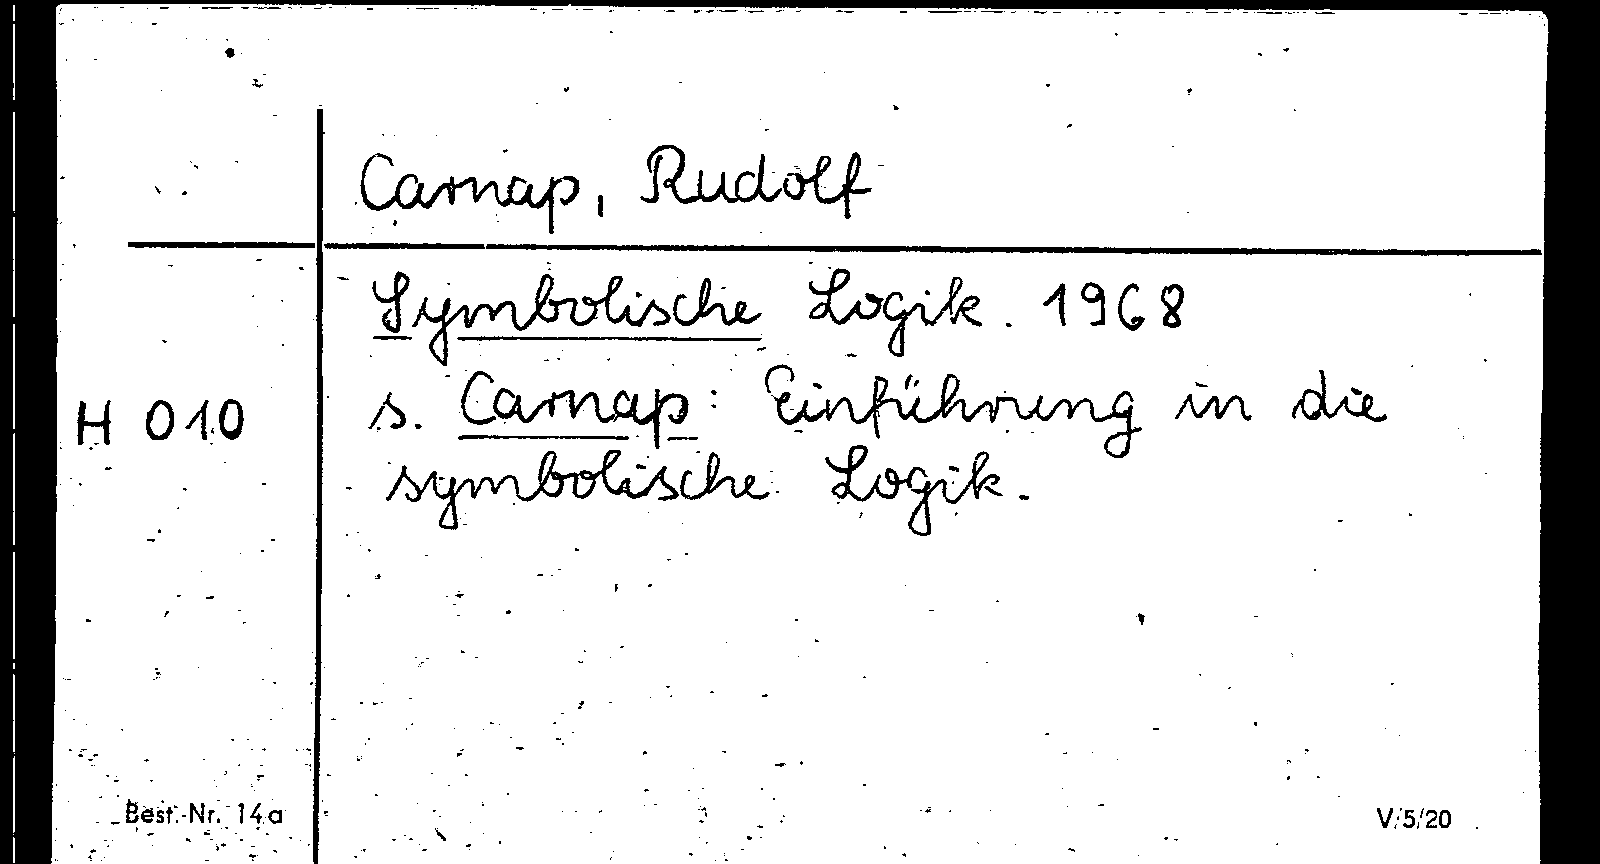 Carnap, Rudolf
Symbolische Logik. 1968
H 010 s. Carnap: Einführung in die
symbolische Logik.
Best.-Nr. 14a V/5/20